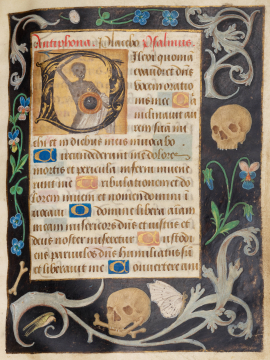 Antiphona Placebo Psalmus
Ilexi quonia
exaudiet dn̄s
vocem oratio
nis mee Quia
inclinauit au
rem suā mi
chi et in diebus meis inuocabo
Circundederunt me dolores
mortis et pericula inferni inuene
runt me Tribulationem et do
lorem inueni et nomen domini in
uocaui O domine libera aīam
meam misericors dn̄s et iustus et
deus noster miseretur Custodi
ens paruulos dn̄s humiliatus sū
et liberauit me Conuertere ani